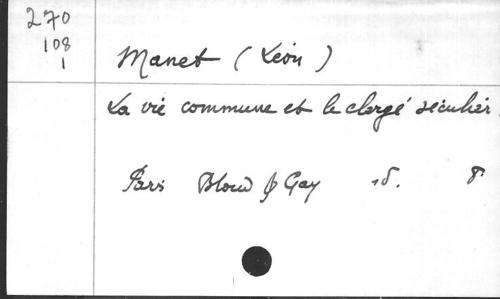 270
108
1
Manet (Léon)
La vie commune et le clergé séculier.
Paris Bloud & Gay sd. 8°